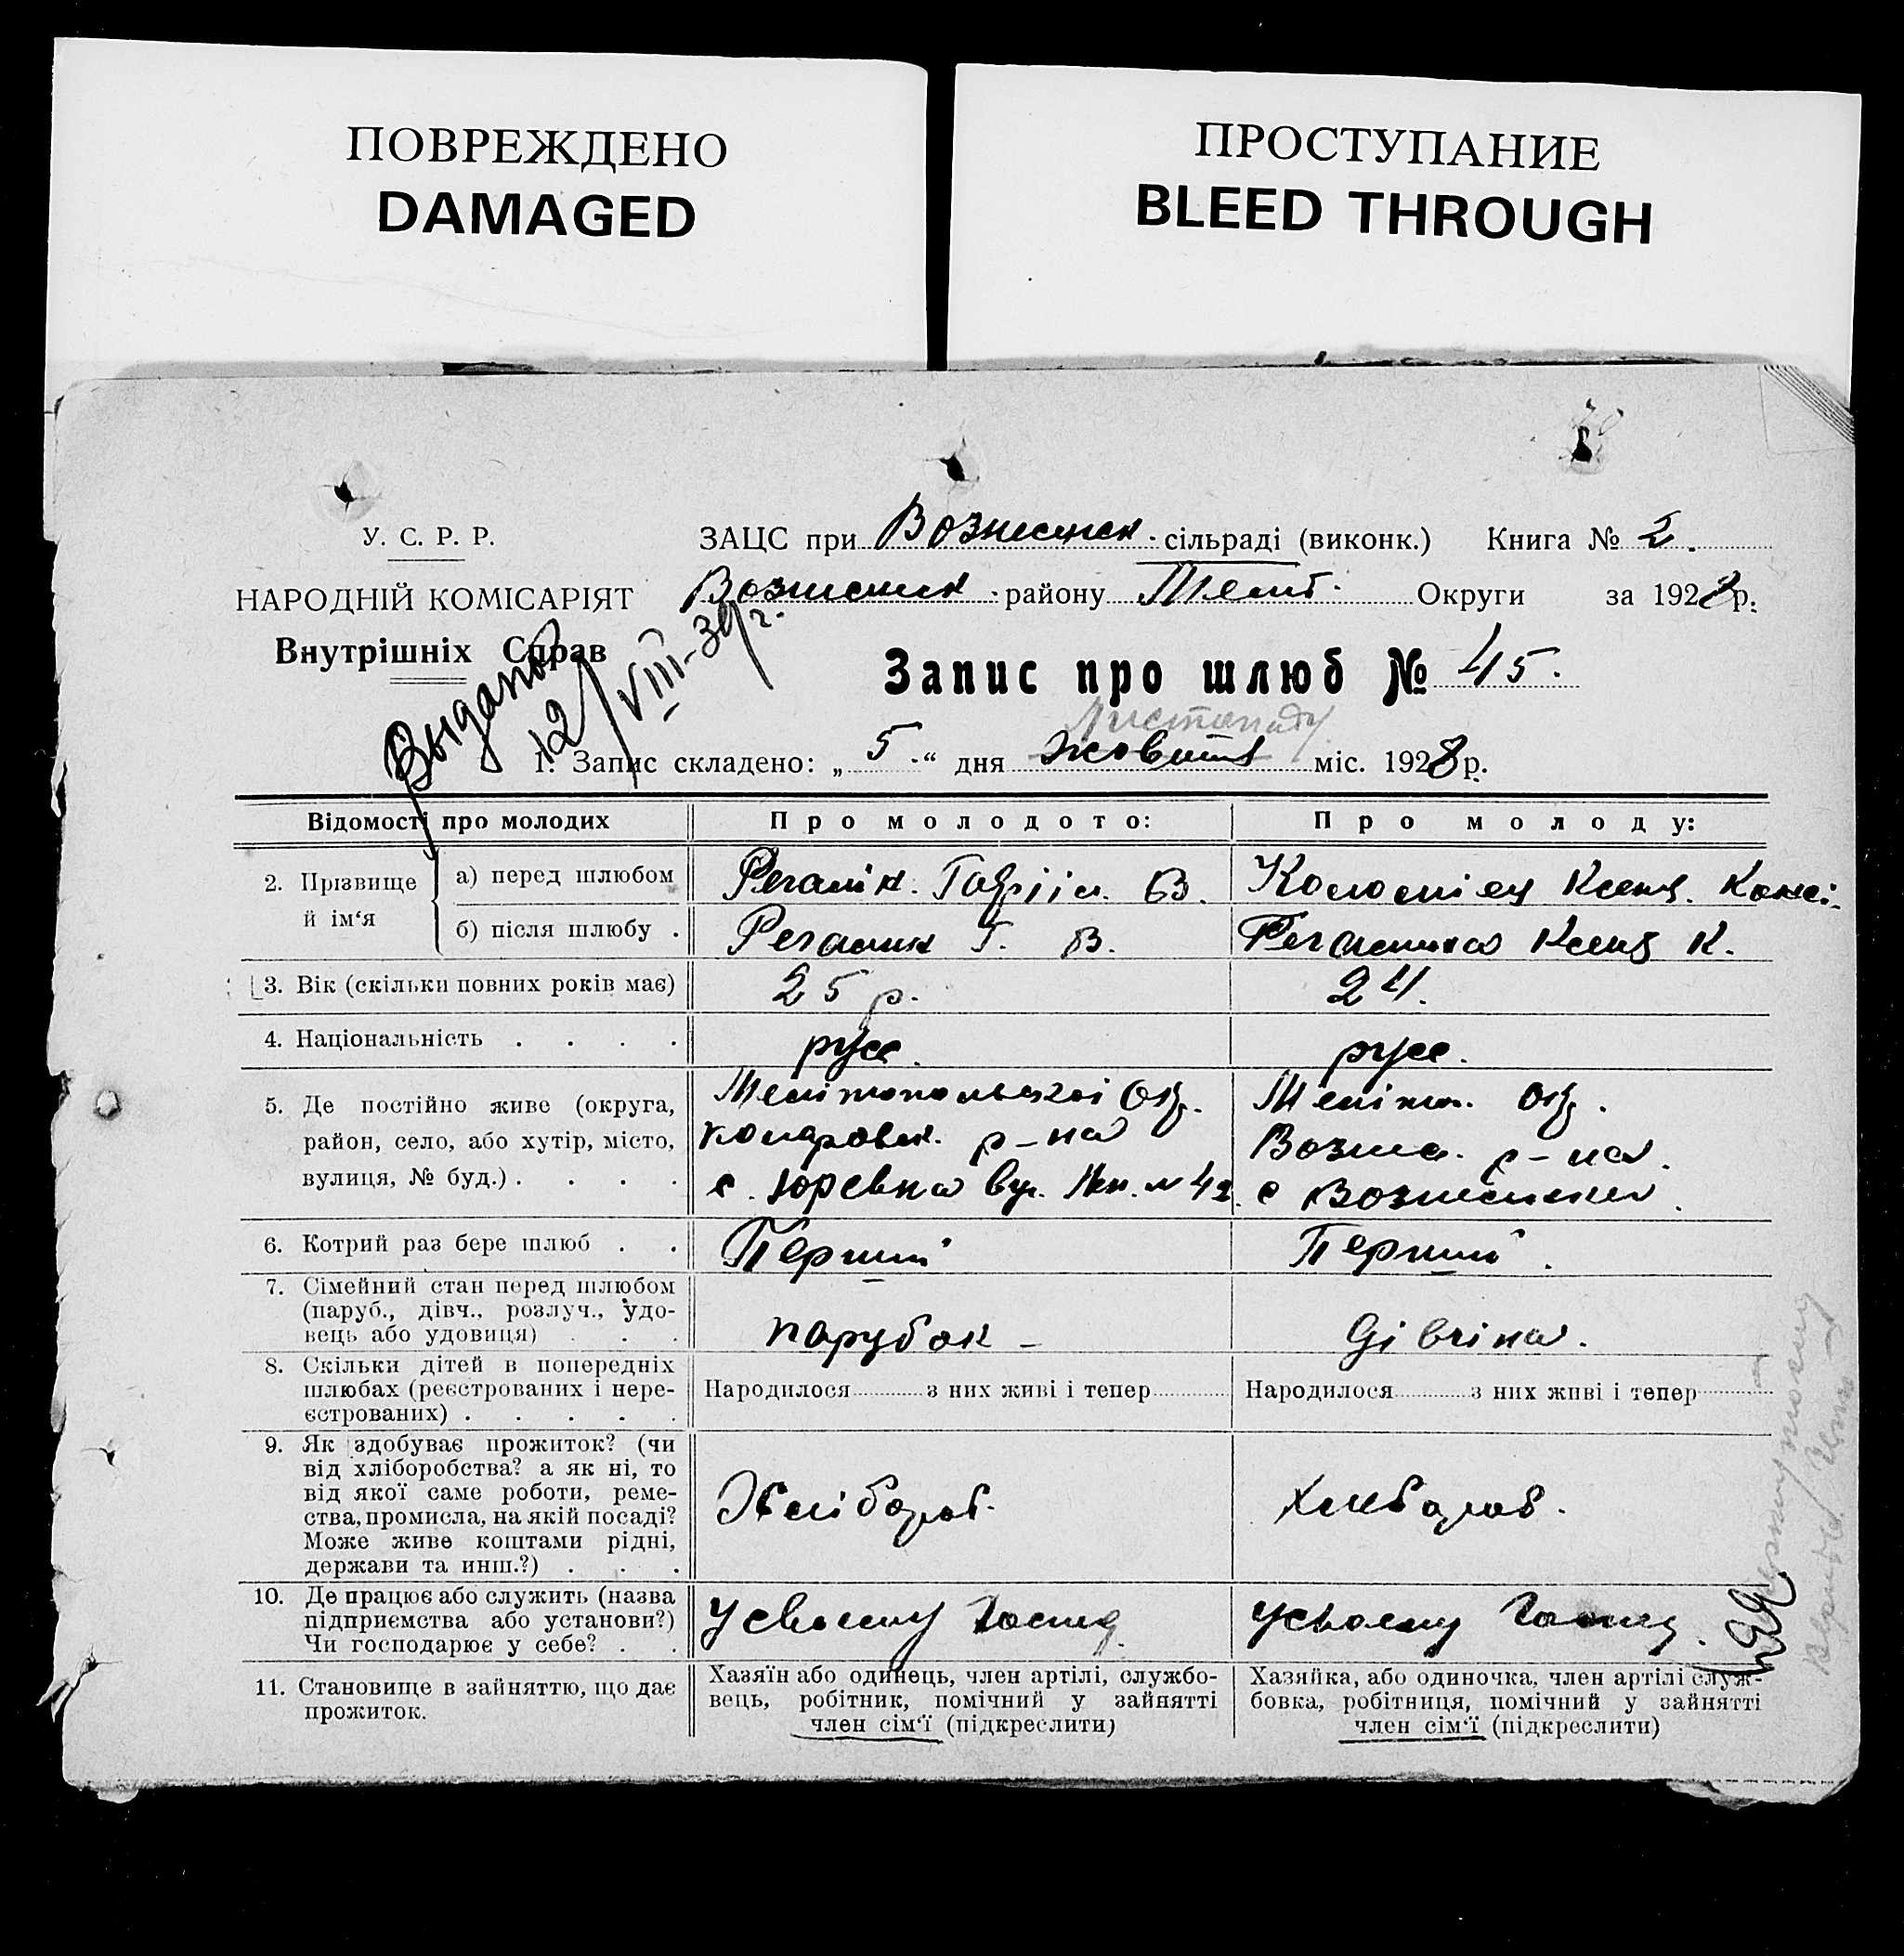 ПОВРЕЖДЕНО
DAMAGED
ПРОСТУПАНИЕ
BLEED THROUGH
У. С. Р. Р.
НАРОДНІЙ КОМІСАРІЯТ
Внутрішніх Справ
ЗАЦС при Вознесенск. сільраді (виконк.) Книга № 2.
Вознесенск. району Меліт. Округи за 1928 р.
Запис про шлюб № 45.
Выдано
12/VIII-39 г.
Листопаду
1. Запис складено: „ 5 “ дня жовтня міс. 1928 р.
Відомості про молодих
Про молодого:
Про молоду:
2. Прізвище й ім‘я
а) перед шлюбом
Гаврііл. В.
Коломіец Ксень. Конс.
б) після шлюбу .
Г. В.
Ксень К.
3. Вік (скільки повних років має)
25 р.
24.
4. Національність . . . .
русс.
русс.
5. Де постійно живе (округа,
район, село, або хутір, місто,
вулиця, № буд.) . . . .
Мелітопольскої Окр.
р-на
с. Юревка вул. № 42.
Меліт. Окр.
Возне. р-на.
с Вознесенка.
6. Котрий раз бере шлюб . .
Перший
Перший.
7. Сімейний стан перед шлюбом
(паруб., дівч., розлуч., удо-
вець або удовиця) . . .
парубок –
дівчіна.
8. Скільки дітей в попередніх
шлюбах (реєстрованих і нере-
єстрованих) . . . . .
Народилося з них живі і тепер
Народилося з них живі і тепер
9. Як здобуває прожиток? (чи
від хліборобства? а як ні, то
від якої саме роботи, реме-
ства, промисла, на якій посаді?
Може живе коштами рідні,
держави та инш.?) . . .
Хліброб.
Хлибороб.
10. Де працює або служить (назва
підприємства або установи?)
Чи господарює у себе? . .
У своему Госпд.
У своему Госпд.
11. Становище в зайняттю, що дає
прожиток.
Хазяїн або одинець, член артілі, службо-
вець, робітник, помічний у зайнятті
член сім‘ї (підкреслити)
Хазяйка, або одиночка, член артілі служ-
бовка, робітниця, помічний у зайнятті
член сім‘ї (підкреслити)